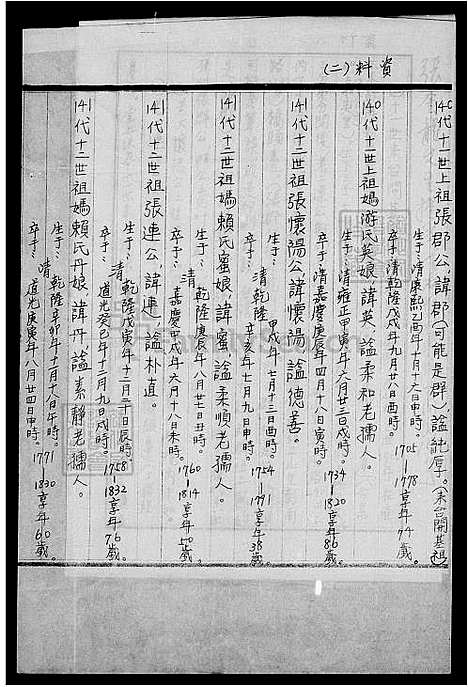 資料(二)
140代十一世上祖張郡公,諱郡(可能是群),諡純厚。(來台開基祖)
生于:清康熙乙酉年十月十六日申時。
卒于:清乾隆戊戌年九月廿八日酉時。 1705—1778享年74歲。
140代十一世上祖媽游氏英娘,諱英,諡柔和老孺人。
生于:清雍正甲寅年六月廿三日戌時。
卒于:清嘉慶庚辰年四月十八日寅時。 1734—1820享年86歲。
141代十二世祖張懷陽公,諱懷陽,諡德善。
生于:清乾隆甲戌年七月十三日酉時。
卒于:辛亥年七月九日申時。 1754—1791享年38歲。
141代十二世祖媽賴氏蜜娘,諱蜜,諡柔順老孺人。
生于:清乾隆庚辰年八月廿七日丑時。
卒于:嘉慶甲戌年六月十八日未時。 1760—1814享年50歲。
141代十二世祖張連公,諱連,諡朴直。
生于:清乾隆戊寅年十二月二十日辰時。
卒于:道光癸巳年十二月九日戌時。 1758—1832享年76歲。
141代十二世祖媽賴氏丹娘,諱丹,諡素靜老孺人。
生于:清乾隆辛卯年十月十八日午時。
卒于:道光庚寅年八月廿四日申時。 1771—1830享年60歲。